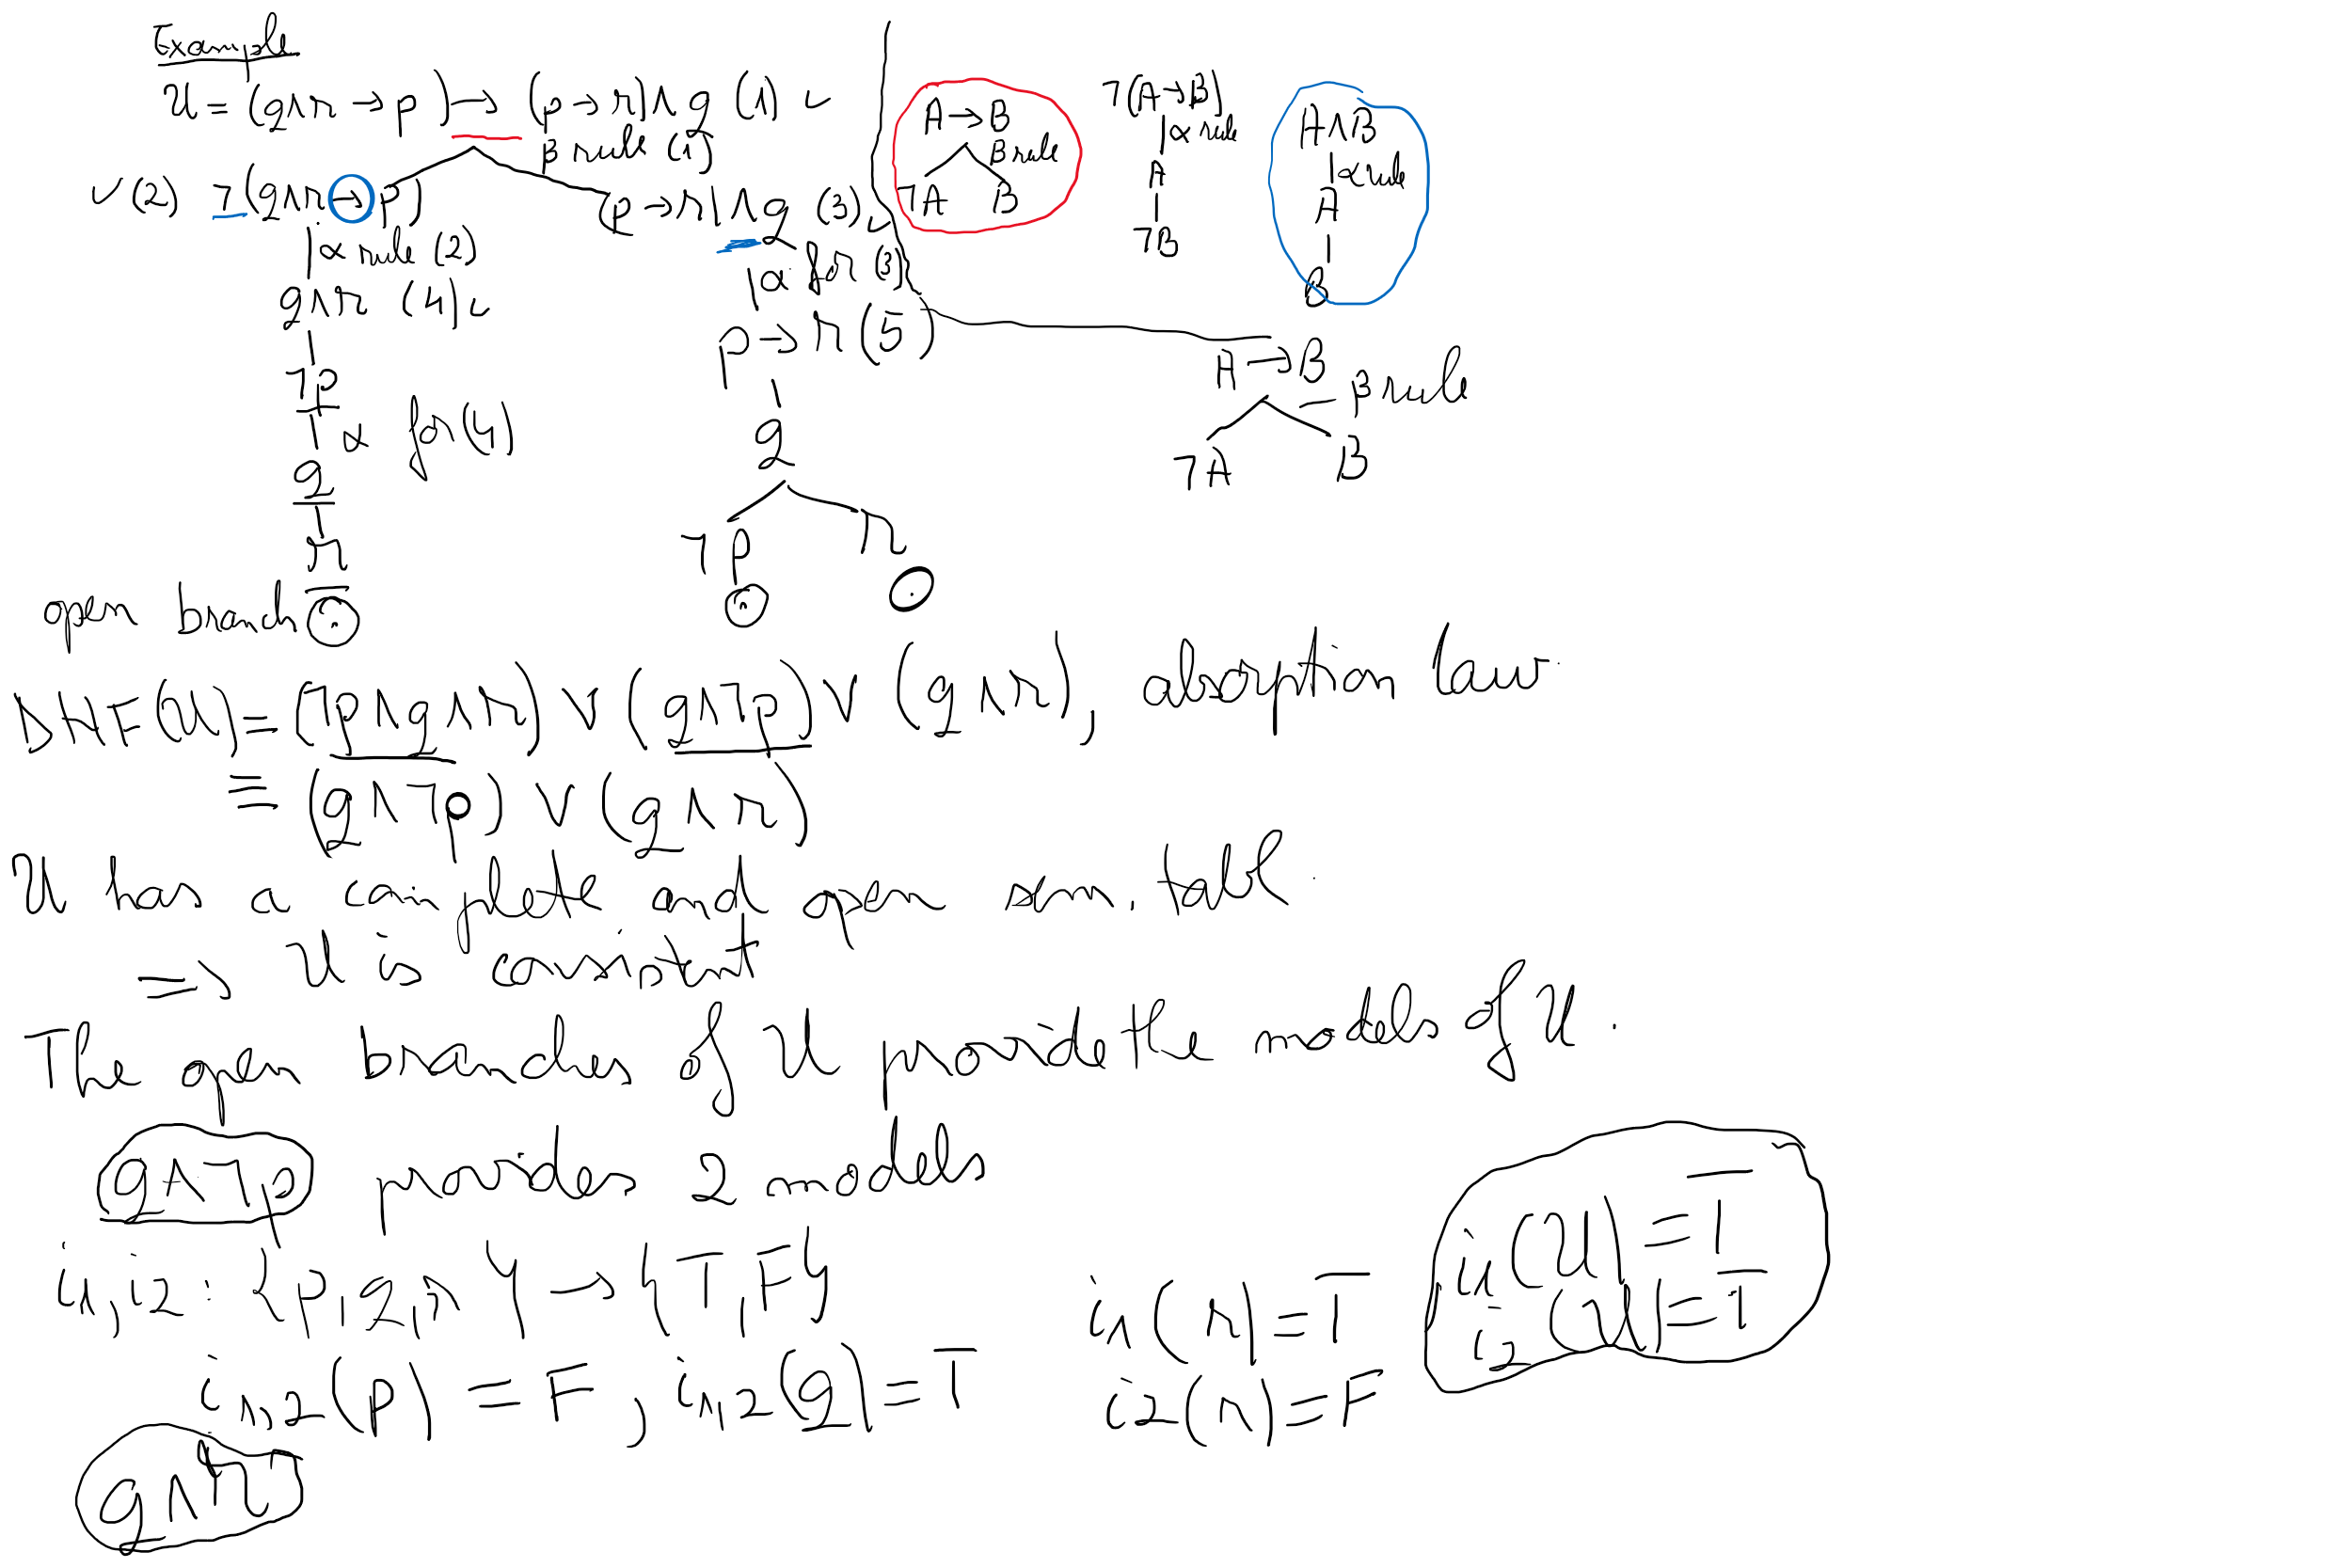 Example
U = (q∧r → p) → (p→r)∧q (1) ✓
β rule (1)
✓ (2) ¬(q∧r → p)
(p→r)∧q (3) ✓
α rule (2)
α for (3)
q∧r (4) ✓
p→r (5)
¬p
α for (4)
q
q
r
¬p
r
open branch ⊙
⊙
⊙
A→B
β rule
¬A B
¬(A→B)
α rule
A
¬B
A∧B
α rule
A
B
A→B
β rule
¬A B
DNF(U) = (¬p∧q∧r) ∨ (q∧¬p) ∨ (q∧r), absorption law
≡ (q∧¬p) ∨ (q∧r)
U has a complete and open sem. tabl.
=> U is consistent
The open branches of U provide the models of U.
q∧¬p provides 2 models
i1, i2 : {p, q, r} → {T, F}
i1,2(p) = F, i1,2(q) = T
i1(r) = T
i2(r) = F
i1(U) = T
i2(U) = T
q∧r